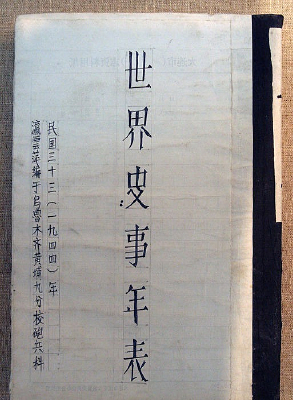 世界史事年表
民国三十三(一九四四)年
瀛云萍编于乌鲁木齐黄埔九分校砲兵科